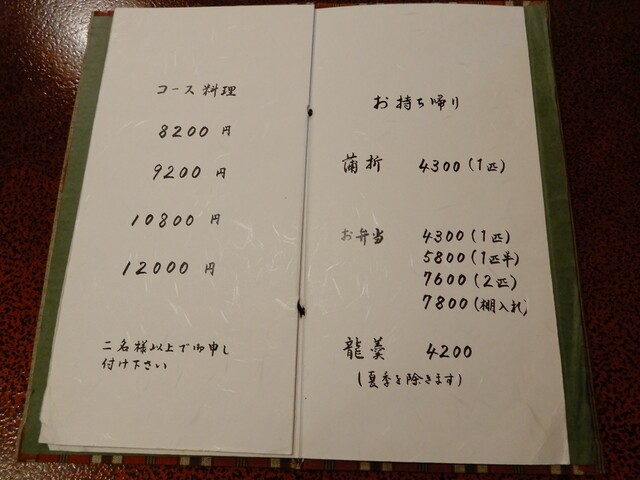 コース料理
8200円
9200円
10800円
12000円
二名様以上で御申し
付け下さい
お持ち帰り
蒲折 4300(1匹)
お弁当 4300(1匹)
5800(1匹半)
7600(2匹)
7800(棚入れ)
龍羹 4200
(夏季を除きます)